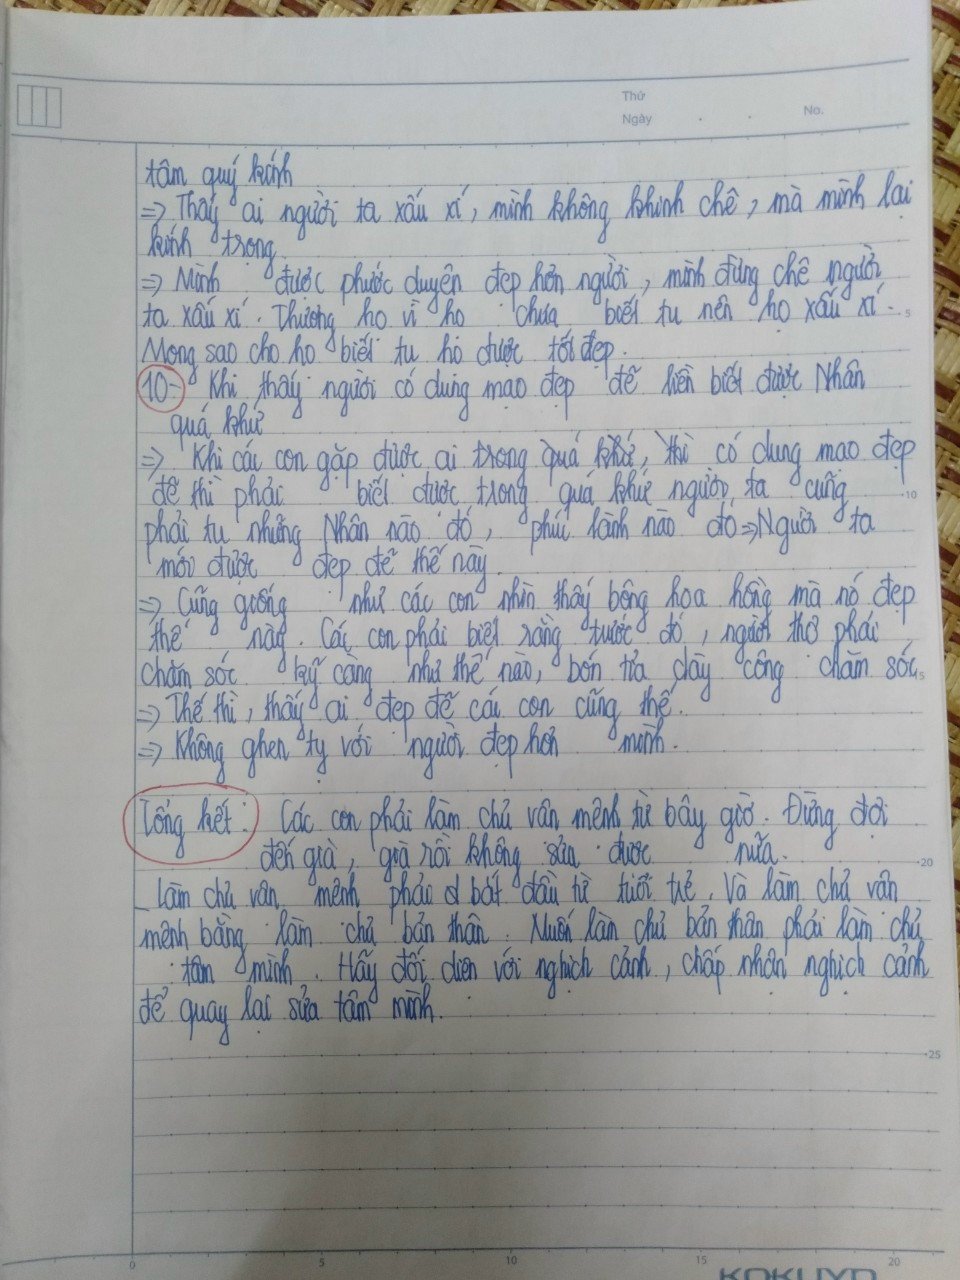 Thứ
Ngày . .
No.
tâm quý kính
=> Thấy ai người ta xấu xí, mình không khinh chê, mà mình lại
kính trọng.
=> Mình được phước duyên đẹp hơn người, mình đừng chê người
ta xấu xí. Thương họ vì họ chưa biết tu nên họ xấu xí.
5
Mong sao cho họ biết tu họ được tốt đẹp.
10- Khi thấy người có dung mạo đẹp đẽ liền biết được Nhân
quá khứ
=> Khi các con gặp được ai trong quá khứ, thì có dung mạo đẹp
đẽ thì phải biết được trong quá khứ người ta cũng
10
phải tu những Nhân nào đó, phúc lành nào đó => Người ta
mới được đẹp đẽ thế này.
=> Cũng giống như các con nhìn thấy bông hoa hồng mà nó đẹp
thế này. Các con phải biết rằng trước đó, người thợ phải
chăm sóc kỹ càng như thế nào, bón tỉa dày công chăm sóc.
15
=> Thế thì, thấy ai đẹp đẽ các con cũng thế.
=> Không ghen tỵ với người đẹp hơn mình.
Tổng kết: Các con phải làm chủ vận mệnh từ bây giờ. Đừng đợi
đến già, già rồi không sửa được nữa.
20
_ Làm chủ vận mệnh phải bắt đầu từ tuổi trẻ. Và làm chủ vận
mệnh bằng làm chủ bản thân. Muốn làm chủ bản thân phải làm chủ
tâm mình. Hãy đối diện với nghịch cảnh, chấp nhận nghịch cảnh
để quay lại sửa tâm mình.
25
0 5 10 15 20
KOKUYO